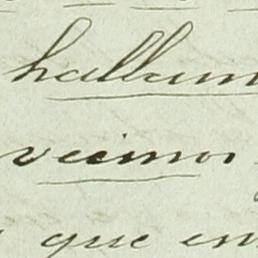 hallan
vecinos
que en